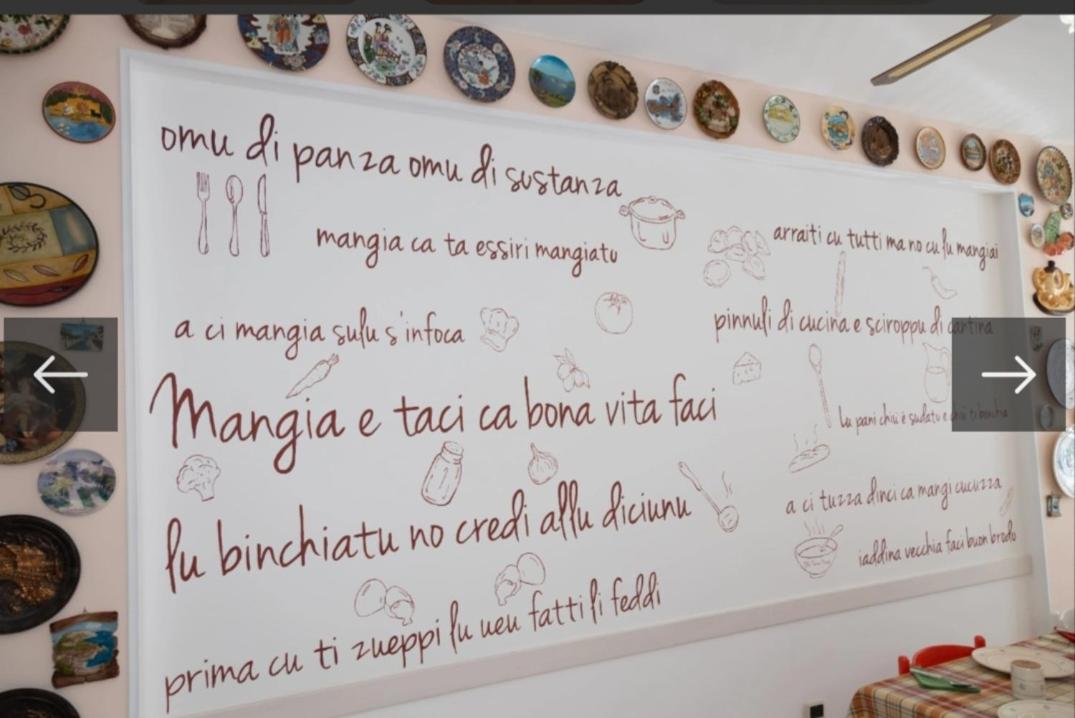 omu di panza omu di sustanza
mangia ca ta essiri mangiatu
arraiti cu tutti ma no cu lu mangiai
a ci mangia sulu s'infoca
pinnuli di cucina e sciroppu di cantina
Mangia e taci ca bona vita faci
lu pani chiu è sudatu e
lu binchiatu no credi allu diciunu
a ci tuzza dinci ca mangi cucuzza
iaddina vecchia faci buon brodo
prima cu ti zueppi lu ueu fatti li feddi